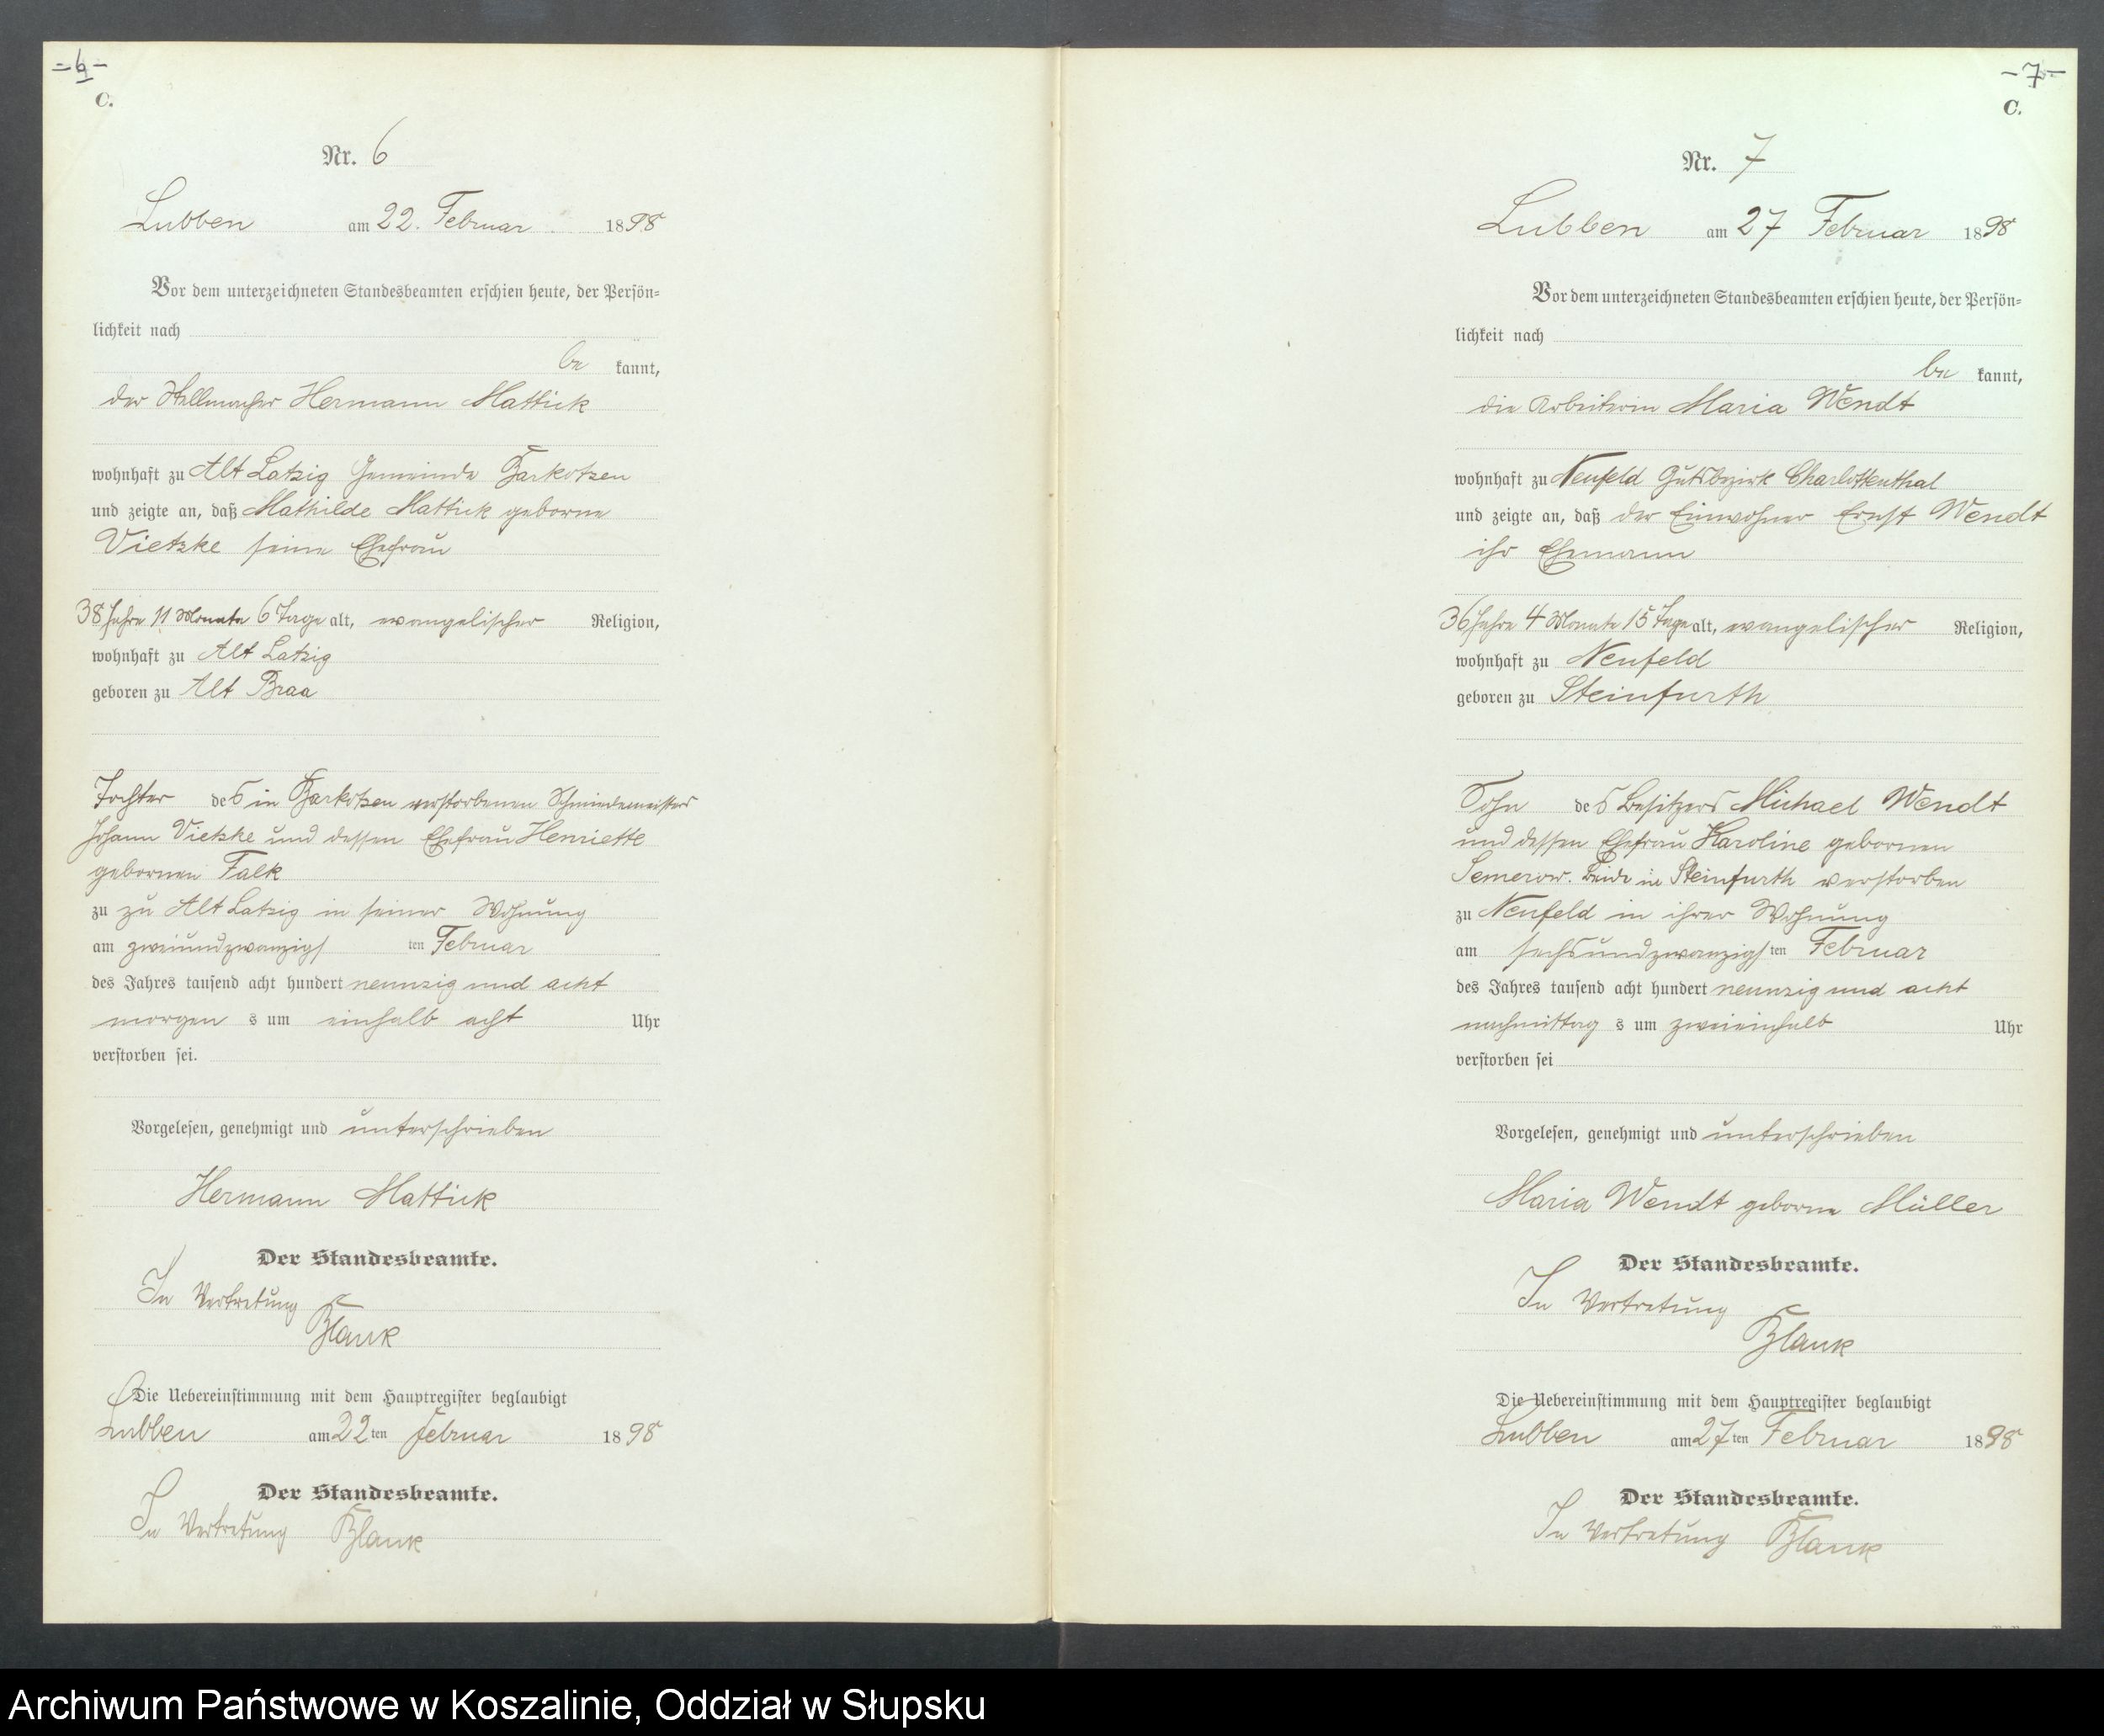 =6=
C.
Nr. 6
Lubben am 22. Februar 1898
Vor dem unterzeichneten Standesbeamten erschien heute, der Persön-
lichkeit nach
be kannt,
der Stellmacher Hermann Mattick
wohnhaft zu Alt Latzig Gemeinde Barkotzen
und zeigte an, daß Mathilde Mattick geborne
Vietzke seine Ehefrau
38 Jahre 11 Monate 6 Tage alt, evangelischer Religion,
wohnhaft zu Alt Latzig
geboren zu Alt Braa
Tochter des in Barkotzen verstorbenen Schmiedemeisters
Johann Vietzke und dessen Ehefrau Henriette
gebornen Falk
zu zu Alt Latzig in seiner Wohnung
am zweiundzwanzigs ten Februar
des Jahres tausend acht hundert neunzig und acht
morgen s um einhalb acht Uhr
verstorben sei.
Vorgelesen, genehmigt und unterschrieben
Hermann Mattick
Der Standesbeamte.
In Vertretung
Blank
Die Uebereinstimmung mit dem Hauptregister beglaubigt
Lubben am 22 ten Februar 1898
Der Standesbeamte.
In Vertretung Blank
-7-
C.
Nr. 7
Lubben am 27 Februar 1898
Vor dem unterzeichneten Standesbeamten erschien heute, der Persön-
lichkeit nach
be kannt,
die Arbeiterin Maria Wendt
wohnhaft zu Neufeld Gutsbezirk Charlottenthal
und zeigte an, daß der Einwohner Ernst Wendt
ihr Ehemann
36 Jahre 4 Monate 15 Tage alt, evangelischer Religion,
wohnhaft zu Neufeld
geboren zu Steinfurth
Sohn des Besitzers Michael Wendt
und dessen Ehefrau Karoline gebornen
Semerow. Beide in Steinfurth verstorben
zu Neufeld in ihrer Wohnung
am sechsundzwanzigs ten Februar
des Jahres tausend acht hundert neunzig und acht
nachmittag s um zweieinhalb Uhr
verstorben sei
Vorgelesen, genehmigt und unterschrieben
Maria Wendt geborne Müller
Der Standesbeamte.
In Vertretung
Blank
Die Uebereinstimmung mit dem Hauptregister beglaubigt
Lubben am 27 ten Februar 1898
Der Standesbeamte.
In Vertretung Blank
Archiwum Państwowe w Koszalinie, Oddział w Słupsku